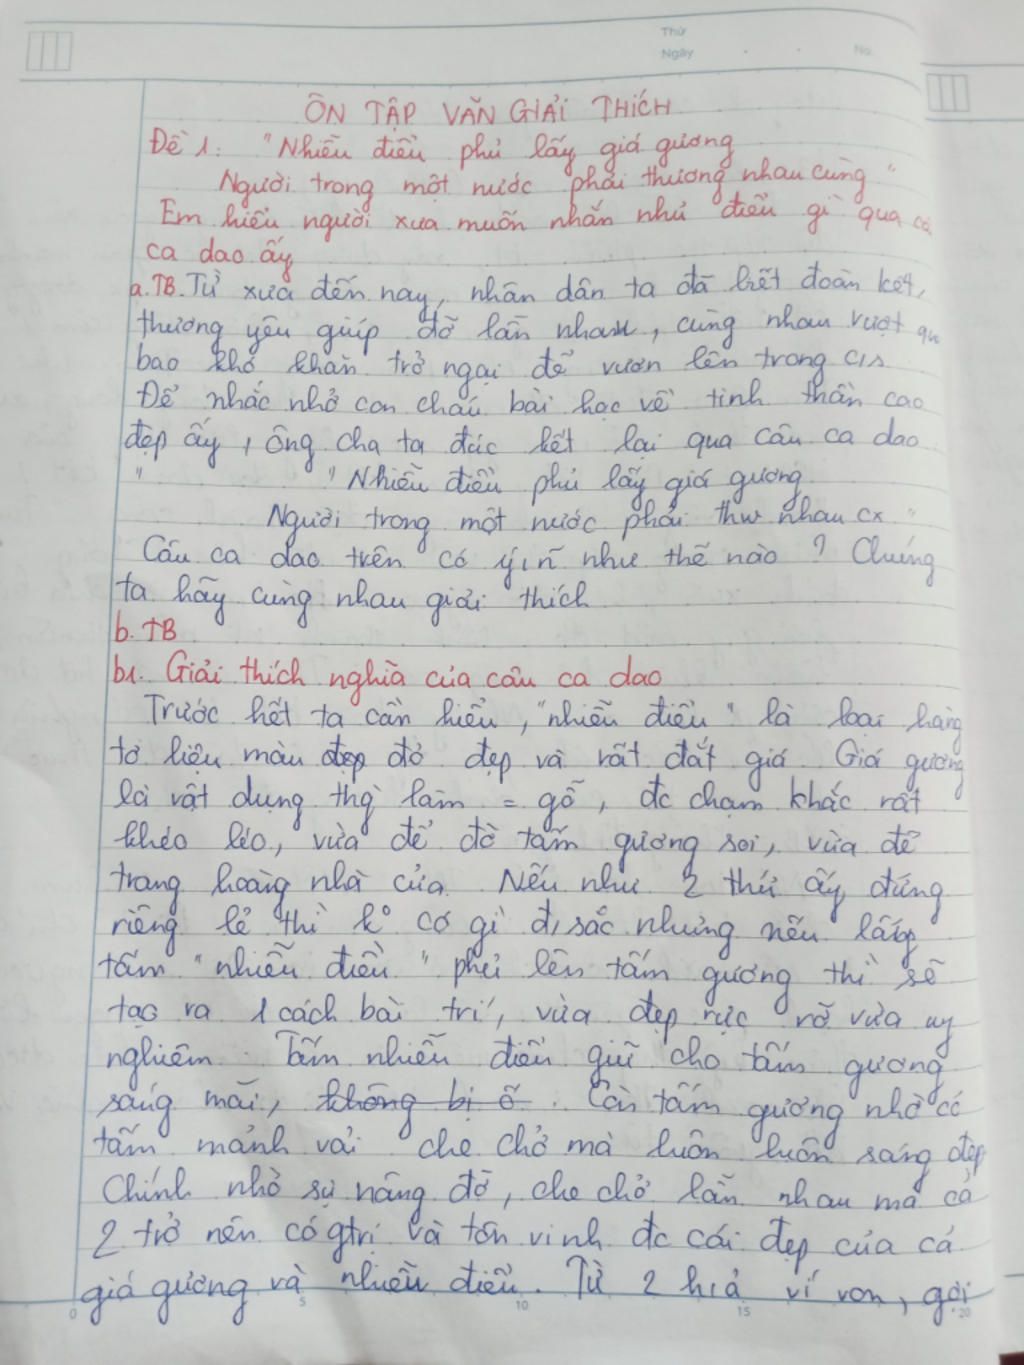 Thứ
Ngày No.
ÔN TẬP VĂN GIẢI THÍCH
Đề 1: "Nhiễu điều phủ lấy giá gương
Người trong một nước phải thương nhau cùng"
Em hiểu người xưa muốn nhắn nhủ điều gì qua
ca dao ấy
a. TB. Từ xưa đến nay, nhân dân ta đã biết đoàn kết,
thương yêu giúp đỡ lẫn nhau, cùng nhau vượt qua
bao khó khăn trở ngại để vươn lên trong c/s
Để nhắc nhở con cháu bài học về tinh thần cao
đẹp ấy, ông cha ta đúc kết lại qua câu ca dao
" "Nhiễu điều phủ lấy giá gương
Người trong một nước phải thw nhau cx "
Câu ca dao trên có ý nĩ như thế nào? Chúng
ta hãy cùng nhau giải thích
b. TB
b1. Giải thích nghĩa của câu ca dao
Trước hết ta cần hiểu, "nhiễu điều" là loại hàng
tơ liệu màu đẹp đỏ đẹp và rất đắt giá. Giá gương
là vật dụng thg làm = gỗ, đc chạm khắc rất
khéo léo, vừa để đỡ tấm gương soi, vừa để
trang hoàng nhà cửa. Nếu như 2 thứ ấy đứng
riêng lẻ thì ko có gì đ/sắc nhưng nếu lấy
tấm "nhiễu điều" phủ lên tấm gương thì sẽ
tạo ra 1 cách bài trí, vừa đẹp rực rỡ vừa uy
nghiêm. Tấm nhiễu điều giữ cho tấm gương
sáng mãi, không bị ố. Còn tấm gương nhờ có
tấm mảnh vải che chở mà luôn luôn sáng đẹp
Chính nhờ sự nâng đỡ, che chở lẫn nhau mà cả
2 trở nên có gtrị và tôn vinh đc cái đẹp của cả
giá gương và nhiễu điều. Từ 2 h/ả ví von, gợi
0 5 10 15 20